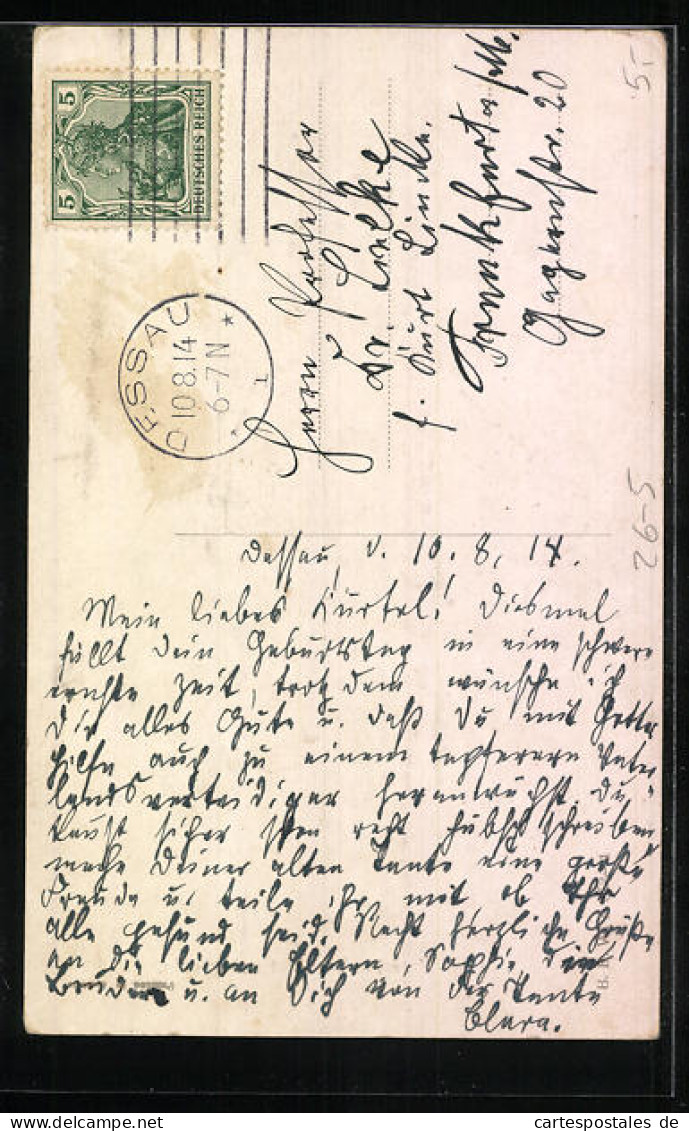 5
DEUTSCHES REICH
5
DESSAU
10.8.14
6-7N
1
5.-
26-5
Herrn Professor
Dr. Linke
f. Kurt Linke.
Frankfurt a/M.
20
Dessau, d. 10. 8. 14.
Mein liebes Kurtel! Diesmal
fällt Dein Geburtstag in eine schwere
ernste Zeit, trotzdem wünsche ich
Dir alles Gute u. daß Du mit Gottes
Hilfe auch zu einem tapferen Vater
landsverteidiger heranwächst. Du
kannst sicher schon recht hübsch schreiben
mache Deiner alten Tante eine große
Freude u. teile ihr mit ob Ihr
alle gesund seid. Recht herzliche Grüße
an die lieben Eltern, Sophie
Brüder u. an Dich von der Tante
Clara.
www.cartespostales.de
cartespostales.de